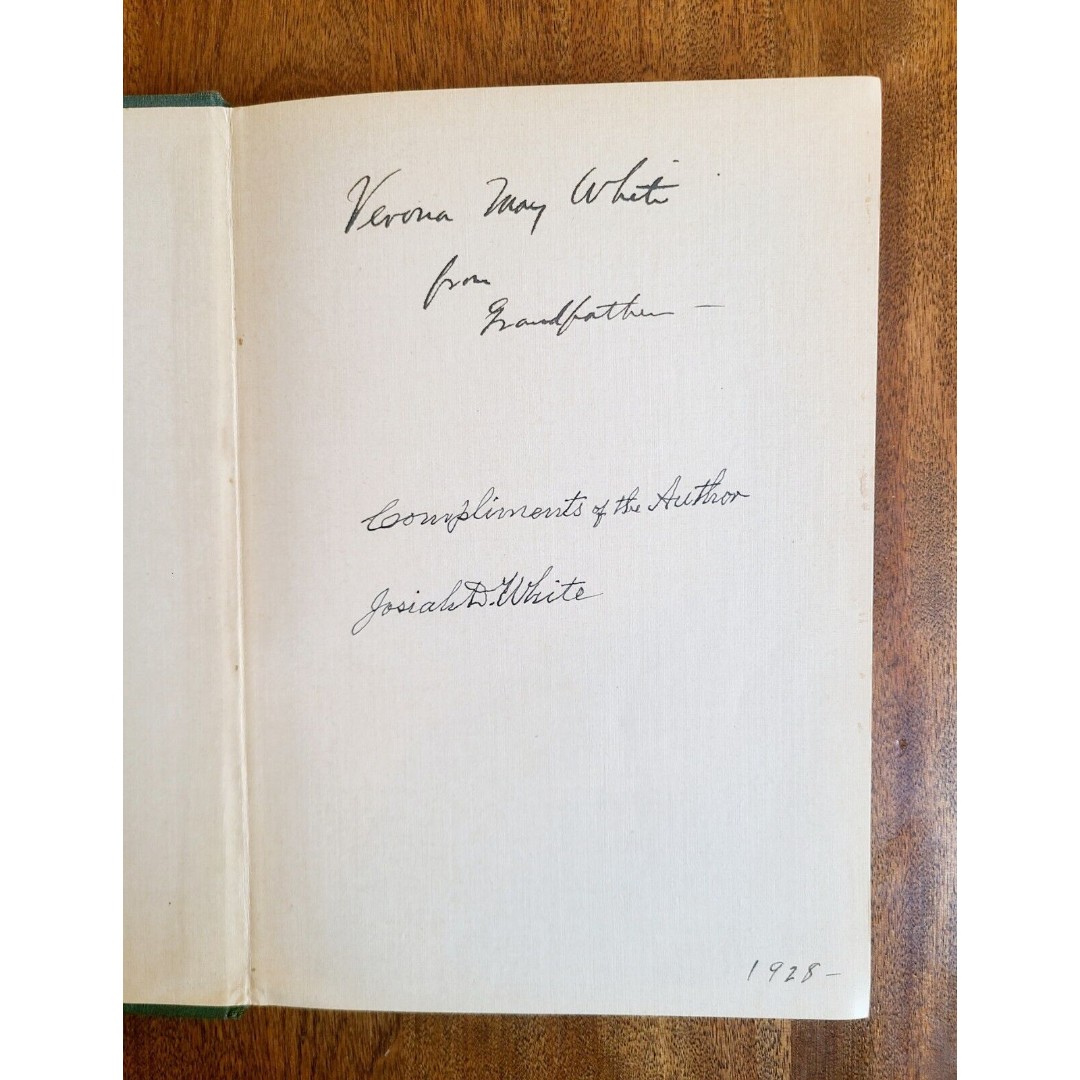 Verona May White
from
Grandfather —
Compliments of the Author
Josiah D. White
1928 —